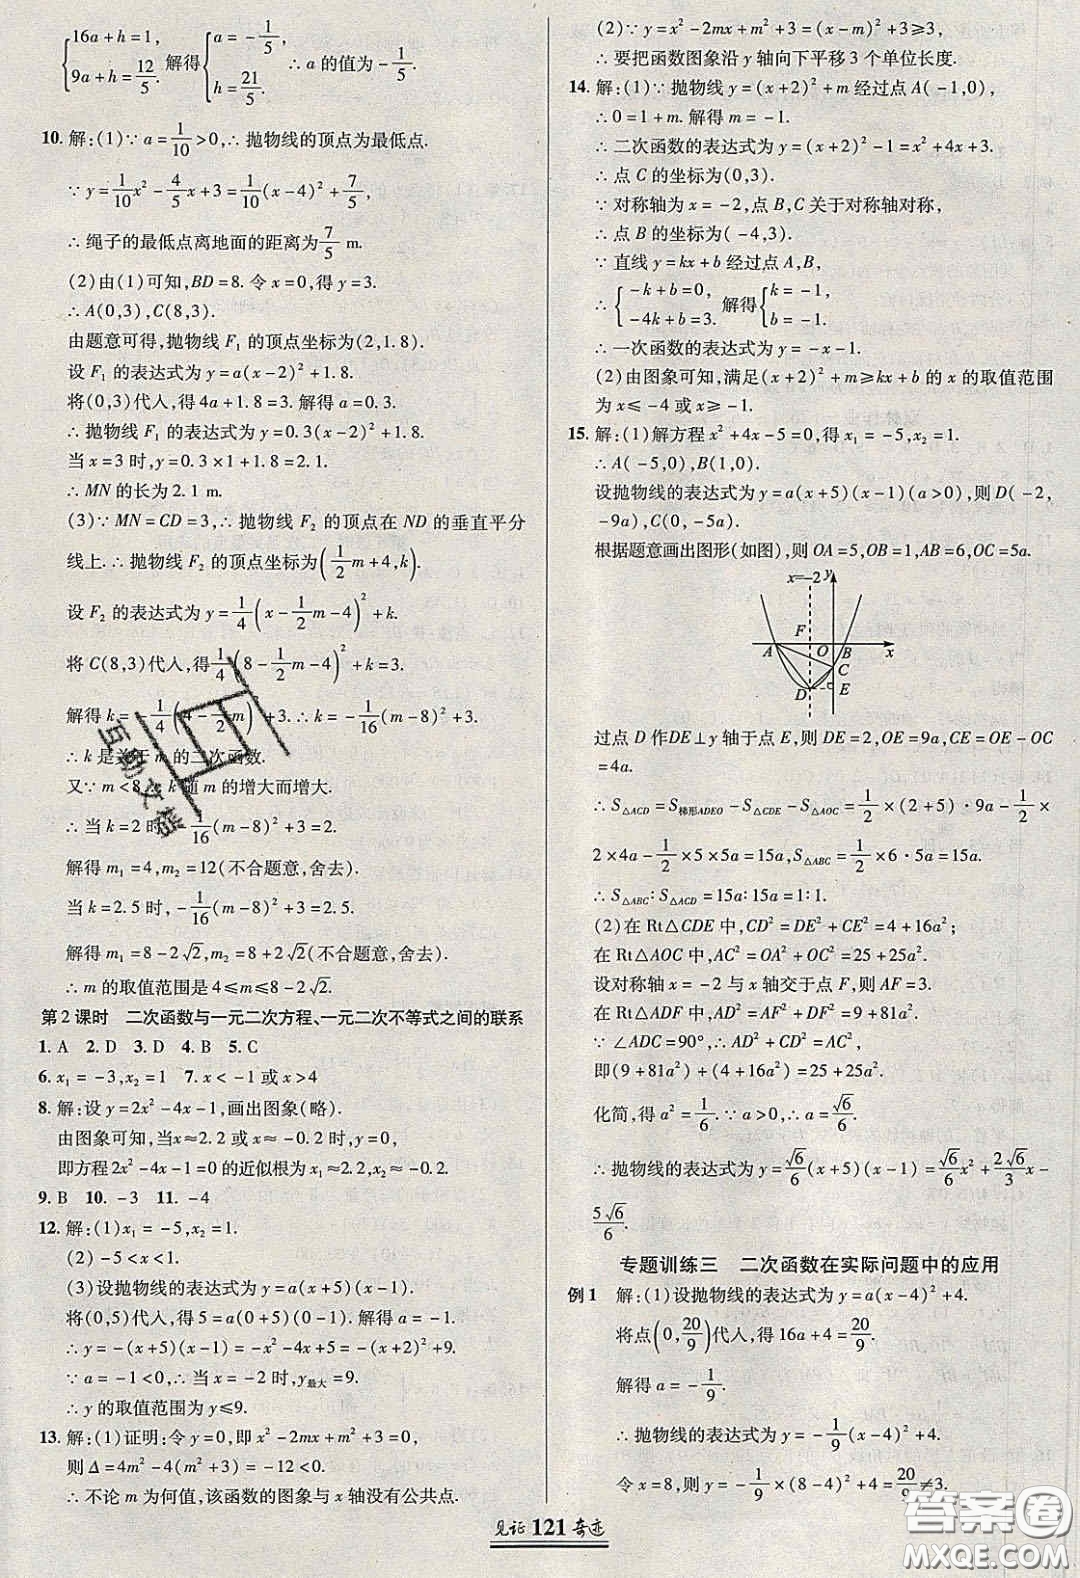 {16a+h=1, 9a+h=12/5. 解得{a=-1/5, h=21/5. ∴a的值为-1/5.
10. 解:(1)∵a=1/10>0,∴抛物线的顶点为最低点.
∵y=1/10x²-4/5x+3=1/10(x-4)²+7/5,
∴绳子的最低点离地面的距离为7/5 m.
(2)由(1)可知,BD=8. 令x=0,得y=3.
∴A(0,3),C(8,3).
由题意可得,抛物线F₁的顶点坐标为(2,1.8).
设F₁的表达式为y=a(x-2)²+1.8.
将(0,3)代人,得4a+1.8=3.解得a=0.3.
∴抛物线F₁的表达式为y=0.3(x-2)²+1.8.
当x=3时,y=0.3×1+1.8=2.1.
∴MN的长为2.1 m.
(3)∵MN=CD=3,∴抛物线F₂的顶点在ND的垂直平分
线上.∴抛物线F₂的顶点坐标为(1/2m+4,k).
设F₂的表达式为y=1/4(x-1/2m-4)²+k.
将C(8,3)代人,得1/4(8-1/2m-4)²+k=3.
解得k=-1/4(4-1/2m)²+3.∴k=-1/16(m-8)²+3.
∴k是关于m的二次函数.
又∵m<8,∴k随m的增大而增大.
∴当k=2时,-1/16(m-8)²+3=2.
解得m₁=4,m₂=12(不合题意,舍去).
当k=2.5时,-1/16(m-8)²+3=2.5.
解得m₁=8-2√2,m₂=8+2√2(不合题意,舍去).
∴m的取值范围是4≤m≤8-2√2.
第2课时 二次函数与一元二次方程、一元二次不等式之间的联系
1. A 2. D 3. D 4. B 5. C
6. x₁=-3,x₂=1 7. x<-1或x>4
8. 解:设y=2x²-4x-1,画出图象(略).
由图象可知,当x≈2.2或x≈-0.2时,y=0,
即方程2x²-4x-1=0的近似根为x₁≈2.2,x₂≈-0.2.
9. B 10. -3 11. -4
12. 解:(1)x₁=-5,x₂=1.
(2)-5<x<1.
(3)设抛物线的表达式为y=a(x+5)(x-1).
将(0,5)代人,得5=a(0+5)(0-1).解得a=-1.
∴y=-(x+5)(x-1)=-x²-4x+5=-(x+2)²+9.
∵a=-1<0,∴当x=-2时,y最大=9.
∴y的取值范围为y≤9.
13. 解:(1)证明:令y=0,即x²-2mx+m²+3=0,
则Δ=4m²-4(m²+3)=-12<0.
∴不论m为何值,该函数的图象与x轴没有公共点.
(2)∵y=x²-2mx+m²+3=(x-m)²+3≥3,
∴要把函数图象沿y轴向下平移3个单位长度.
14. 解:(1)∵抛物线y=(x+2)²+m经过点A(-1,0),
∴0=1+m.解得m=-1.
∴二次函数的表达式为y=(x+2)²-1=x²+4x+3.
∴点C的坐标为(0,3).
∵对称轴为x=-2,点B,C关于对称轴对称,
∴点B的坐标为(-4,3).
∵直线y=kx+b经过点A,B,
∴{-k+b=0, -4k+b=3. 解得{k=-1, b=-1.
∴一次函数的表达式为y=-x-1.
(2)由图象可知,满足(x+2)²+m≥kx+b的x的取值范围
为x≤-4或x≥-1.
15. 解:(1)解方程x²+4x-5=0,得x₁=-5,x₂=1.
∴A(-5,0),B(1,0).
设抛物线的表达式为y=a(x+5)(x-1)(a>0),则D(-2,
-9a),C(0,-5a).
根据题意画出图形(如图),则OA=5,OB=1,AB=6,OC=5a.
x=-2 y
F
A O B x
C
D E
过点D作DE⊥y轴于点E,则DE=2,OE=9a,CE=OE-OC
=4a.
∴S△ACD=S梯形ADEO-S△CDE-S△AOC=1/2×(2+5)·9a-1/2×
2×4a-1/2×5×5a=15a,S△ABC=1/2×6·5a=15a.
∴S△ABC:S△ACD=15a:15a=1:1.
(2)在Rt△CDE中,CD²=DE²+CE²=4+16a²;
在Rt△AOC中,AC²=OA²+OC²=25+25a².
设对称轴x=-2与x轴交于点F,则AF=3.
在Rt△ADF中,AD²=AF²+DF²=9+81a².
∵∠ADC=90°,∴AD²+CD²=AC²,
即(9+81a²)+(4+16a²)=25+25a².
化简,得a²=1/6.∵a>0,∴a=√6/6.
∴抛物线的表达式为y=√6/6(x+5)(x-1)=√6/6x²+2√6/3x-
5√6/6.
专题训练三 二次函数在实际问题中的应用
例1 解:(1)设抛物线的表达式为y=a(x-4)²+4.
将点(0,20/9)代人,得16a+4=20/9.
解得a=-1/9.
∴抛物线的表达式为y=-1/9(x-4)²+4.
令x=8,则y=-1/9×(8-4)²+4=20/9≠3.
见证121奇迹
互助文档
答案圈
MXQE.COM